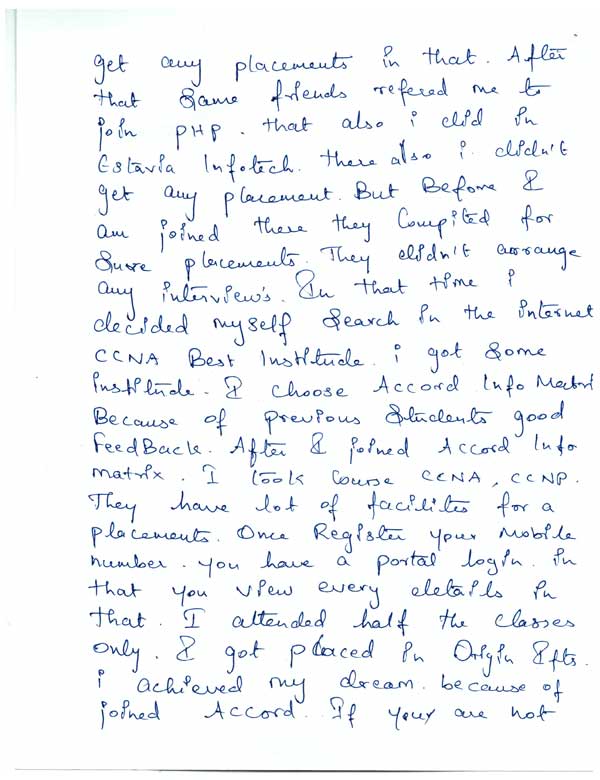 get any placements in that. After
that Same friends refered me to
join PHP. that also i did in
Estavia Infotech. there also i didn't
get any placement. But Before I
am joined there they Compited for
Sure placements. They didn't arrange
any interview's. In that time i
decided myself Search in the internet
CCNA Best Institude. i got Some
institude. I choose Accord Info Matri
Because of previous Students good
FeedBack. After I joined Accord Info
matrix. I took Course CCNA, CCNP.
They have lot of facilites for a
placements. Once Register your Mobile
number. you have a portal login. in
that you view every details in
that. I attended half the classes
only. I got placed in Origin
i achieved my dream. because of
joined Accord. If your are not